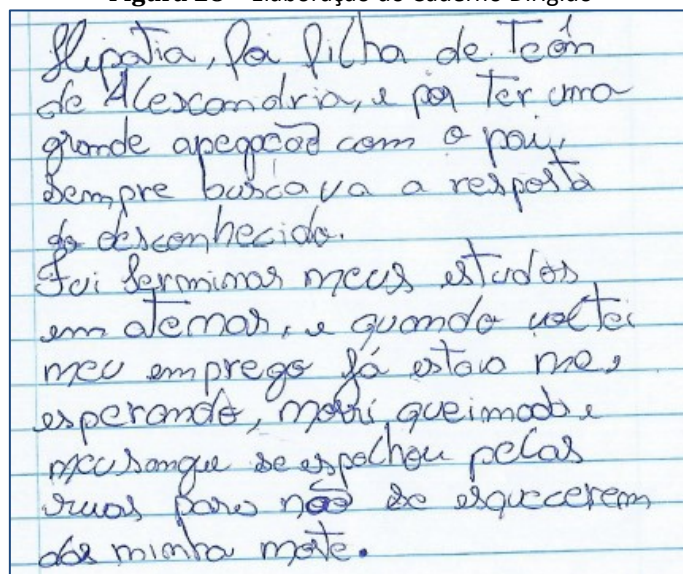 Figura 28 – Elaboração do Caderno Dirigido
Hipatia, foi filha de Teón
de Alexandria, e por ter uma
grande apegação com o pai,
sempre buscava a resposta
do desconhecido.
Fui terminar meus estudos
em Atenas, e quando voltei
meu emprego já estava me
esperando, morri queimada e
meu sangue se espalhou pelas
ruas para não se esquecerem
da minha morte.